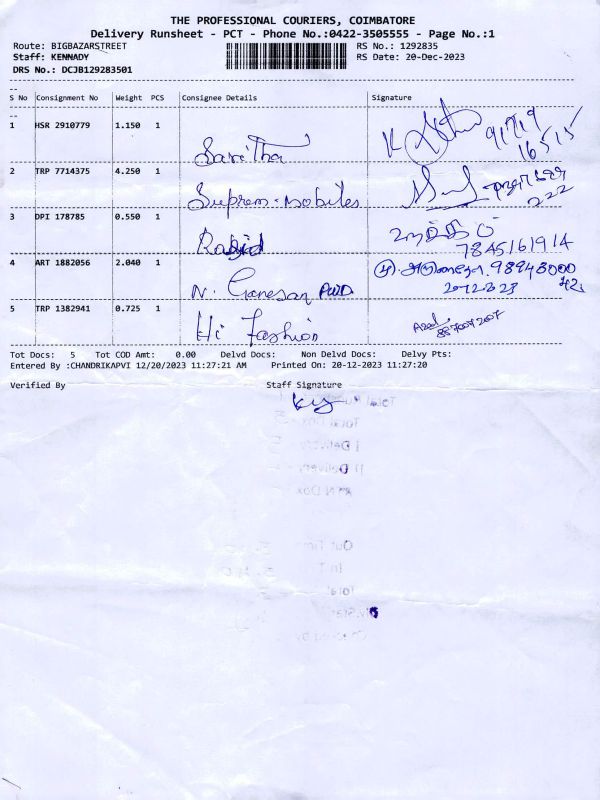 THE PROFESSIONAL COURIERS, COIMBATORE
Delivery Runsheet - PCT - Phone No.:0422-3505555 - Page No.:1
Route: BIGBAZARSTREET RS No.: 1292835
Staff: KENNADY RS Date: 20-Dec-2023
DRS No.: DCJB129283501
S No Consignment No Weight PCS Consignee Details Signature
1 HSR 2910779 1.150 1
Savitha
2 TRP 7714375 4.250 1
Suprem-mobiles
3 DPI 178785 0.550 1
Rasid
7845161914
4 ART 1882056 2.040 1
N. Ganesan PWD
5 TRP 1382941 0.725 1
Hi Fashion
Tot Docs: 5 Tot COD Amt: 0.00 Delvd Docs: Non Delvd Docs: Delvy Pts:
Entered By :CHANDRIKAPVI 12/20/2023 11:27:21 AM Printed On: 20-12-2023 11:27:20
Verified By Staff Signature